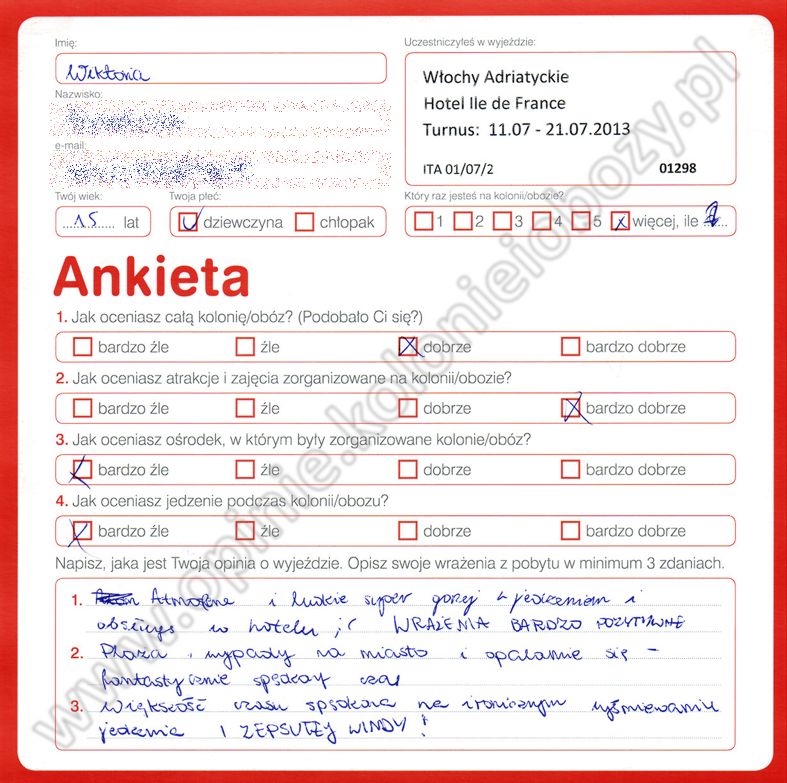 Imię:
Wiktoria
Uczestniczyłeś w wyjeździe:
Włochy Adriatyckie
Hotel Ile de France
Turnus: 11.07 - 21.07.2013
ITA 01/07/2 01298
Nazwisko:
e-mail:
Twój wiek:
15 lat
Twoja płeć:
dziewczyna chłopak
Który raz jesteś na kolonii/obozie?
1 2 3 4 5 więcej, ile
Ankieta
1. Jak oceniasz całą kolonię/obóz? (Podobało Ci się?)
bardzo źle źle dobrze bardzo dobrze
2. Jak oceniasz atrakcje i zajęcia zorganizowane na kolonii/obozie?
bardzo źle źle dobrze bardzo dobrze
3. Jak oceniasz ośrodek, w którym były zorganizowane kolonie/obóz?
bardzo źle źle dobrze bardzo dobrze
4. Jak oceniasz jedzenie podczas kolonii/obozu?
bardzo źle źle dobrze bardzo dobrze
Napisz, jaka jest Twoja opinia o wyjeździe. Opisz swoje wrażenia z pobytu w minimum 3 zdaniach.
1. Atmosfera i ludzie super gorzej z jedzeniem i
obsługą w hotelu ;( WRAŻENIA BARDZO POZYTYWNE
2. Plaża, wypady na miasto i opalanie się -
fantastycznie spędzony czas
3. Większość czasu spędzona na ironicznym wyśmiewaniu
jedzenia I ZEPSUTEJ WINDY!
www.opinie.kolonieiobozy.pl